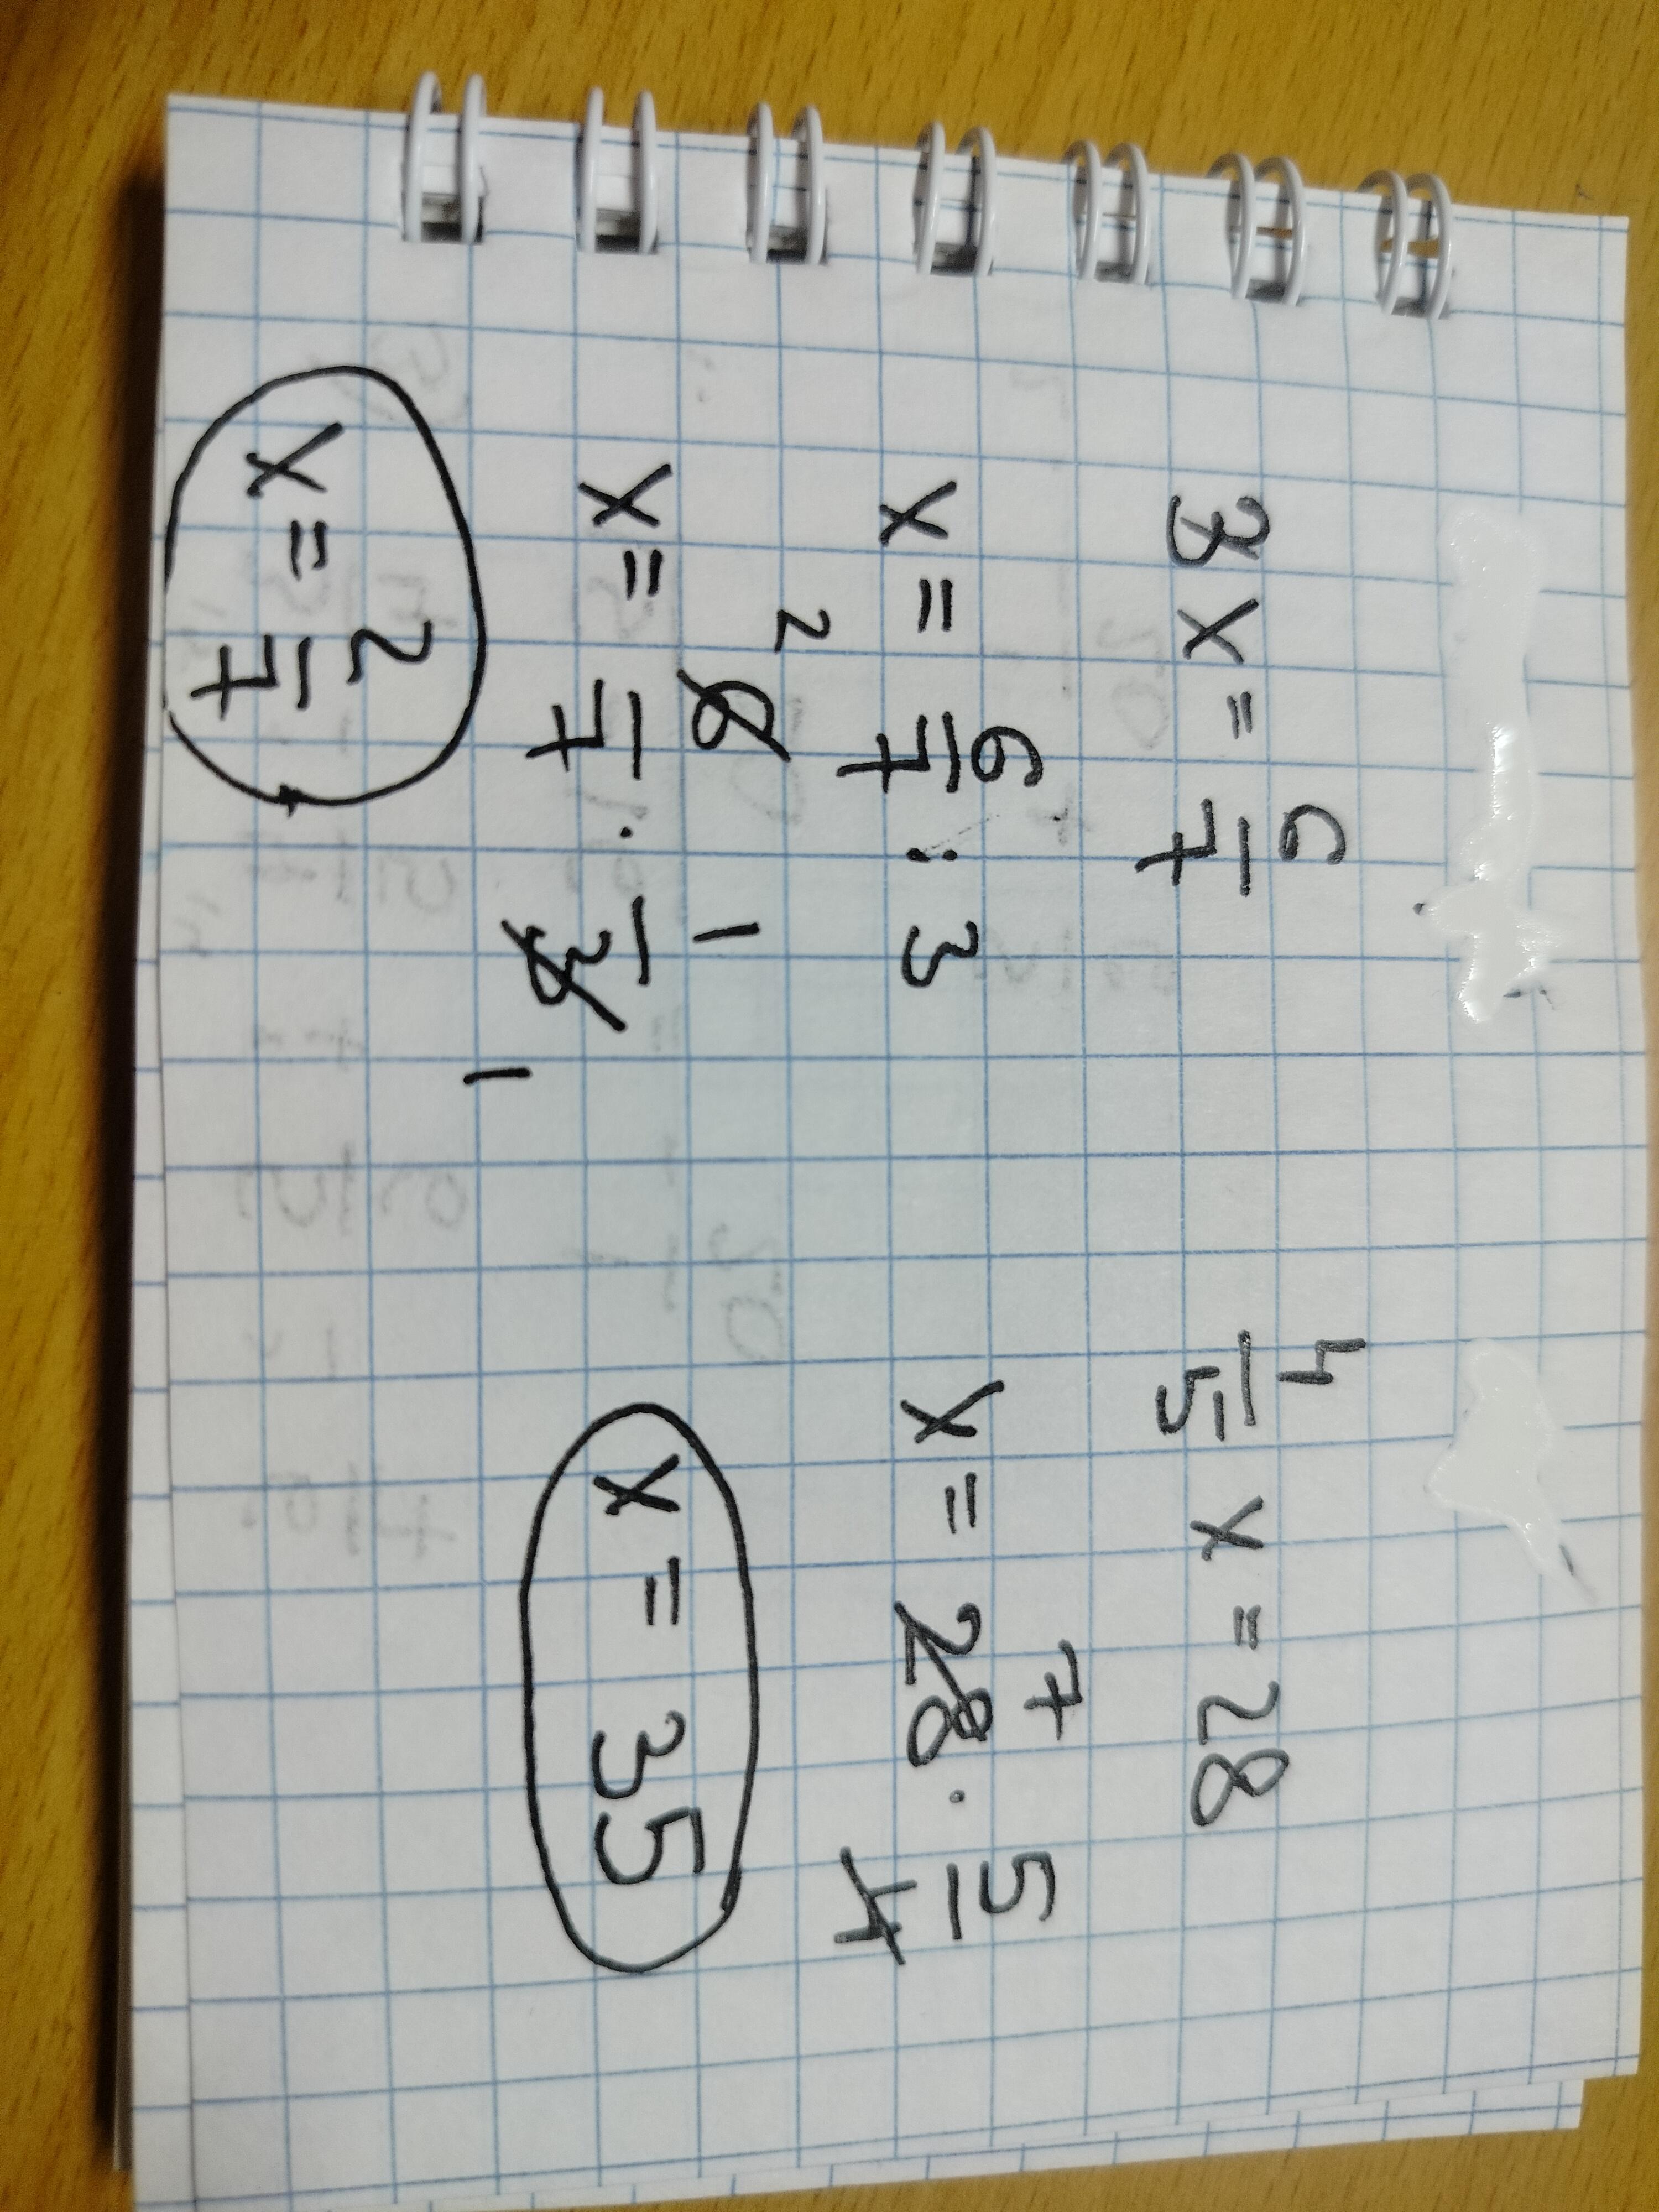 3x = 6/7
x = 6/7 : 3
x = 6/7 · 1/3
2 1
x = 2/7
4/5 x = 28
x = 28 · 5/4
7
x = 35